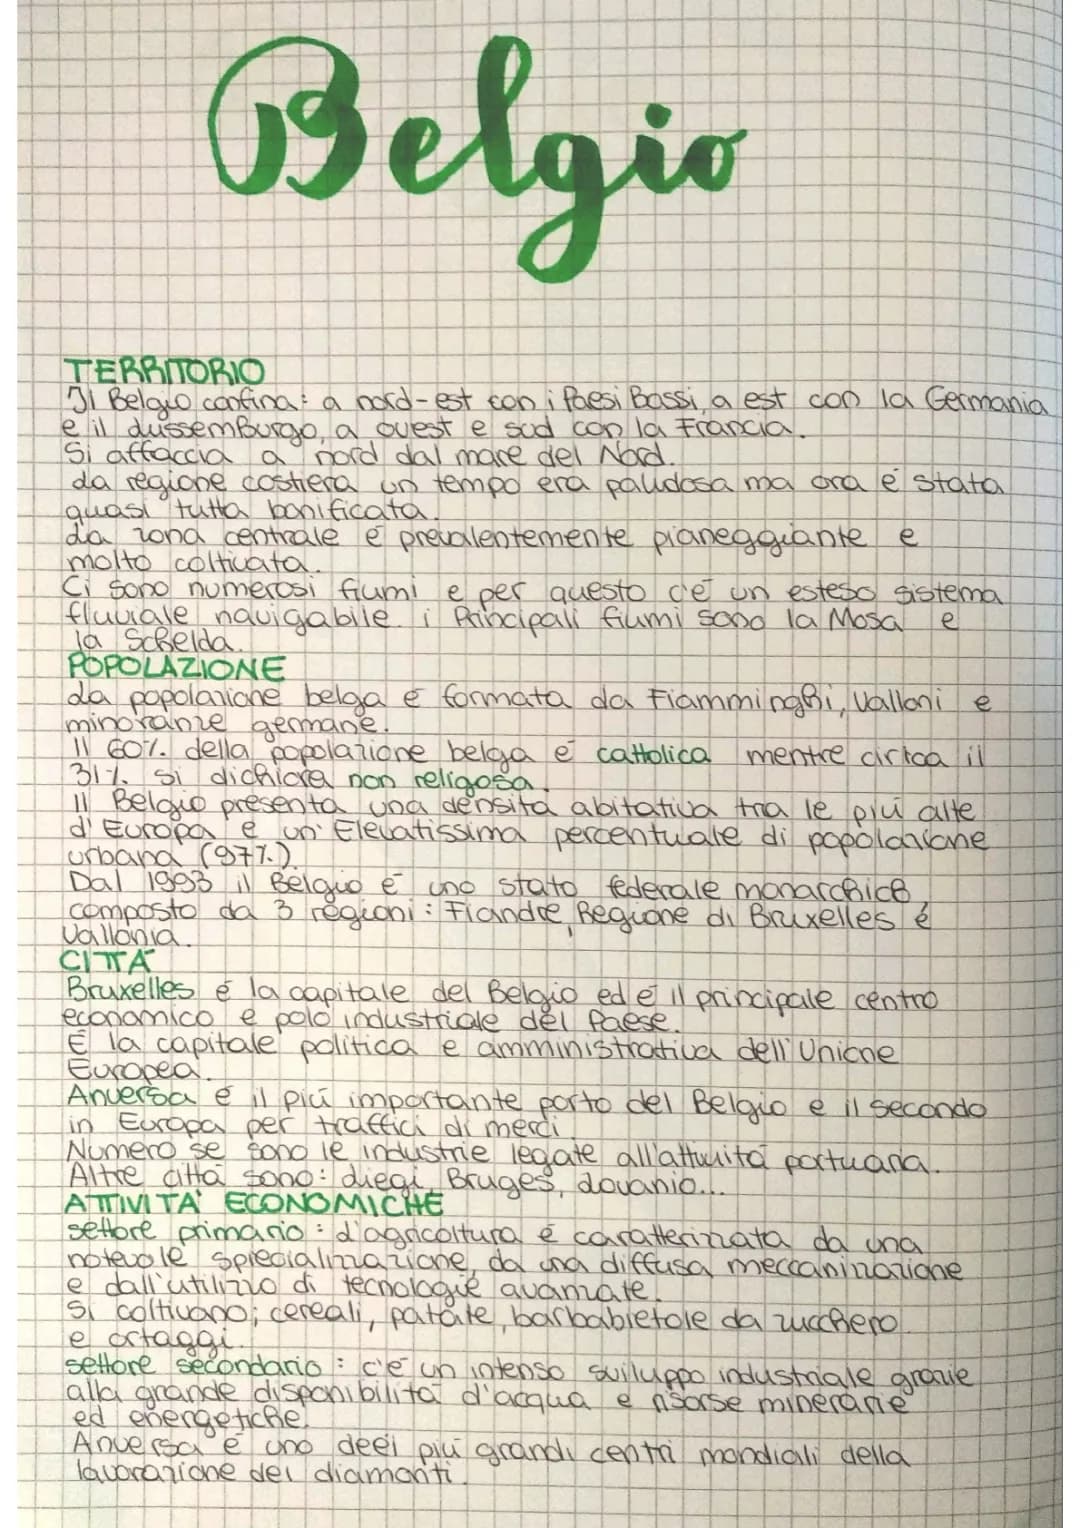 Belgio
TERRITORIO
Il Belgio confina: a nord-est con i Paesi Bassi, a est con la Germania
e il Lussemburgo, a ovest e sud con la Francia.
Si affaccia a nord dal mare del Nord.
La regione costiera un tempo era paludosa ma ora é stata
quasi tutta bonificata.
La zona centrale é prevalentemente pianeggiante e
molto coltivata.
Ci sono numerosi fiumi e per questo c'é un esteso sistema
fluviale navigabile. i Principali fiumi sono la Mosa e
la Schelda.
POPOLAZIONE
La popolazione belga é formata da Fiamminghi, Valloni e
minoranze germane.
Il 60% della popolazione belga é cattolica mentre cirtca il
31% si dichiara non religosa.
Il Belgio presenta una densitá abitativa tra le piú alte
d'Europa e un'Elevatissima percentuale di popolazione
urbana (97%).
Dal 1993 il Belgio é uno stato federale monarchico
composto da 3 regioni: Fiandre, Regione di Bruxelles é
Vallonia.
CITTÁ
Bruxelles é la capitale del Belgio ed é il principale centro
economico e polo industriale del Paese.
É la capitale politica e amministrativa dell'Unione
Europea.
Anversa é il piú importante porto del Belgio e il secondo
in Europa per traffici di merci.
Numero se sono le industrie legate all'attivitá portuaria.
Altre cittá sono: Liegi, Bruges, Lovanio...
ATTIVITA' ECONOMICHE
settore primario: L'agricoltura é caratterizzata da una
notevole specializzazione, da una diffusa meccanizzazione
e dall'utilizzo di tecnologie avanzate.
Si coltivano; cereali, patate, barbabietole da zucchero
e ortaggi.
settore secondario: c'é un intenso sviluppo industriale grazie
alla grande disponibilitá d'acqua e risorse minerarie
ed energetiche.
Anversa é uno deei piú grandi centri mondiali della
lavorazione dei diamanti.